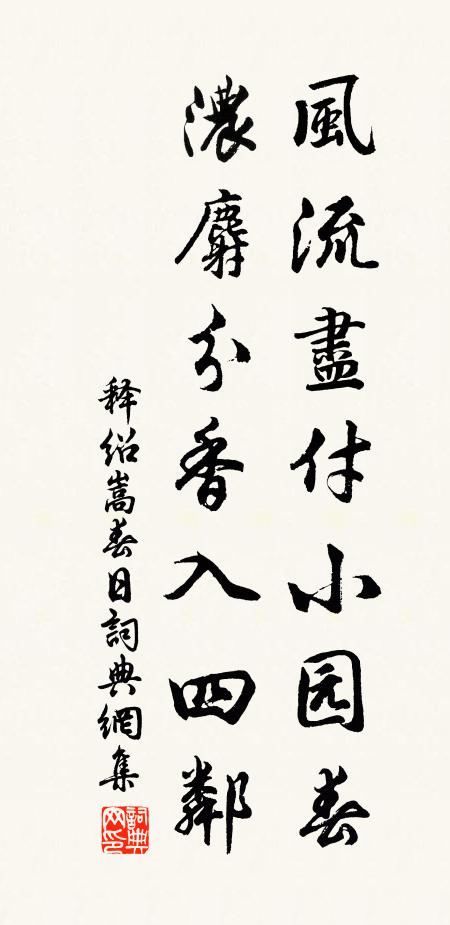 風流盡付小园春
濃麝分香入四鄰
释绍嵩春日詞典網集
詞典网印